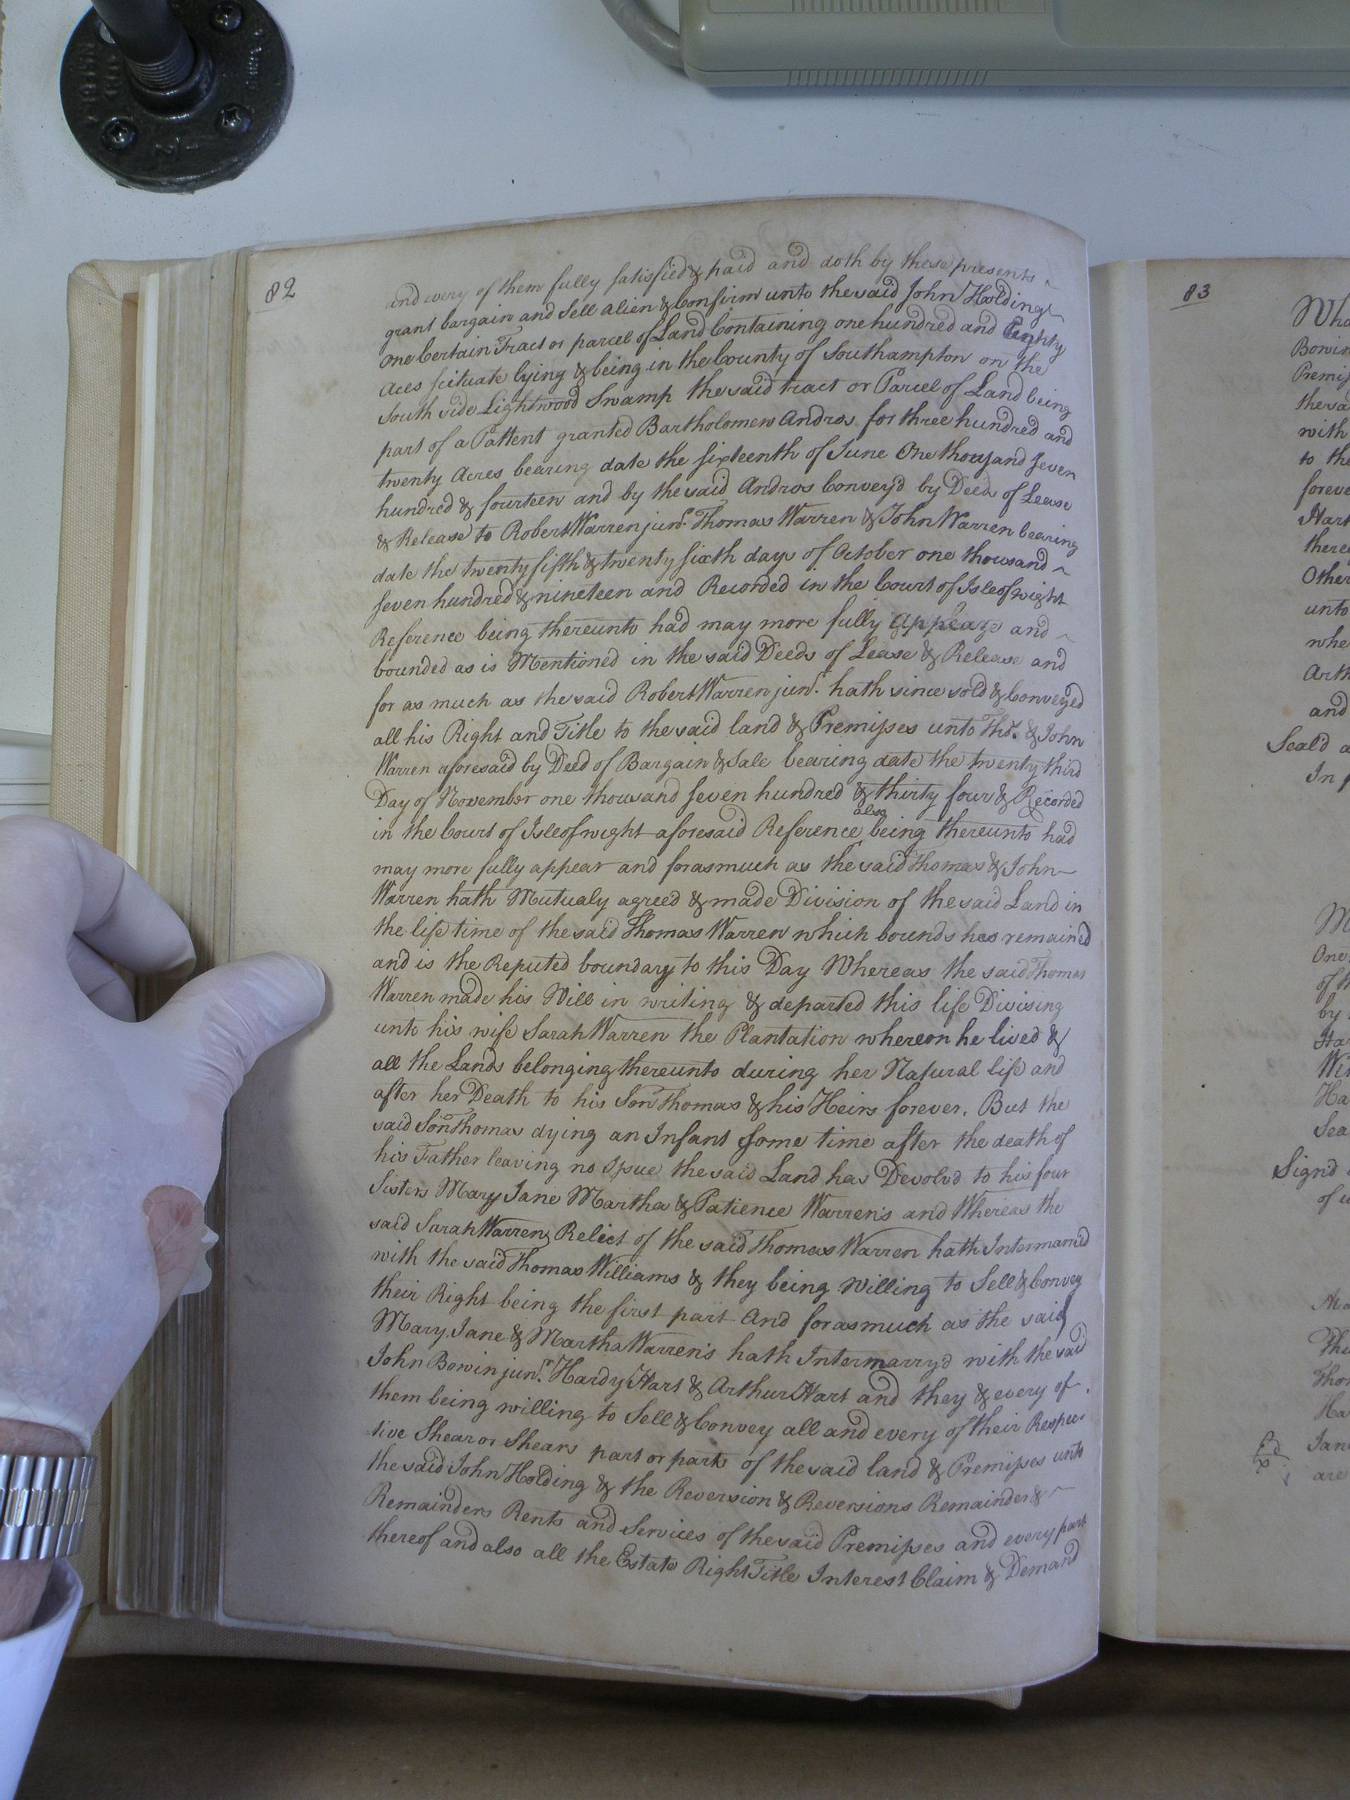 82
and every of them fully satisfied & paid and doth by these presents
grant bargain and Sell alien & Confirm unto the said John Holding
One Certain Tract or parcel of Land Containing one hundred and Eighty
Acres scituate lying & being in the County of Southampton on the
South side Lightwood Swamp the said tract or Parcel of Land being
part of a Pattent granted Bartholomew Andros for three hundred and
twenty Acres bearing date the sixteenth of June One thousand Seven
hundred & fourteen and by the said Andros Convey'd by Deeds of Lease
& Release to Robert Warren junr. Thomas Warren & John Warren bearing
date the twenty fifth & twenty sixth days of October one thousand
Seven hundred & nineteen and Recorded in the Court of Isleofwight
Reference being thereunto had may more fully appear and
bounded as is Mentioned in the said Deeds of Lease & Release and
for as much as the said Robert Warren junr. hath since sold & Conveyed
all his Right and Title to the said land & Premisses unto Thos. & John
Warren aforesaid by Deed of Bargain & Sale bearing date the twenty third
Day of November one thousand Seven hundred & thirty four & Recorded
in the Court of Isleofwight aforesaid Reference also being thereunto had
may more fully appear and forasmuch as the said Thomas & John
Warren hath Mutualy agreed & made Division of the said Land in
the life time of the said Thomas Warren which bounds has remained
and is the Reputed boundary to this Day Whereas the said Thomas
Warren made his Will in writing & departed this life Divising
unto his wife Sarah Warren the Plantation whereon he lived &
all the Lands belonging thereunto during her Natural life and
after her Death to his Son Thomas & his Heirs forever. But the
said Son Thomas dying an Infant Some time after the death of
his Father leaving no Issue the said Land has Devolv'd to his four
Sisters Mary Jane Martha & Patience Warrens and Whereas the
said Sarah Warren Relict of the said Thomas Warren hath Intermarried
with the said Thomas Williams & they being Willing to Sell & Convey
their Right being the first part And forasmuch as the said
Mary, Jane & Martha Warren's hath Intermarry'd with the said
John Bowin junr. Hardy Hart & Arthur Hart and they & every of
them being willing to Sell & Convey all and every of their Respec-
tive Shear or Shears part or parts of the said land & Premisses unto
the said John Holding & the Reversion & Reversions Remainder &
Remainders Rents and Services of the said Premisses and every part
thereof and also all the Estate Right Title Interest Claim & Demand
83
Bowin
Premis
the sa
with
to the
foreve
Hart
there
Other
unto
whe
Arth
and
Seal'd a
In p
One
of th
by
Ha
Sea
Sign'd
of
Tho
Ha
Jan
are